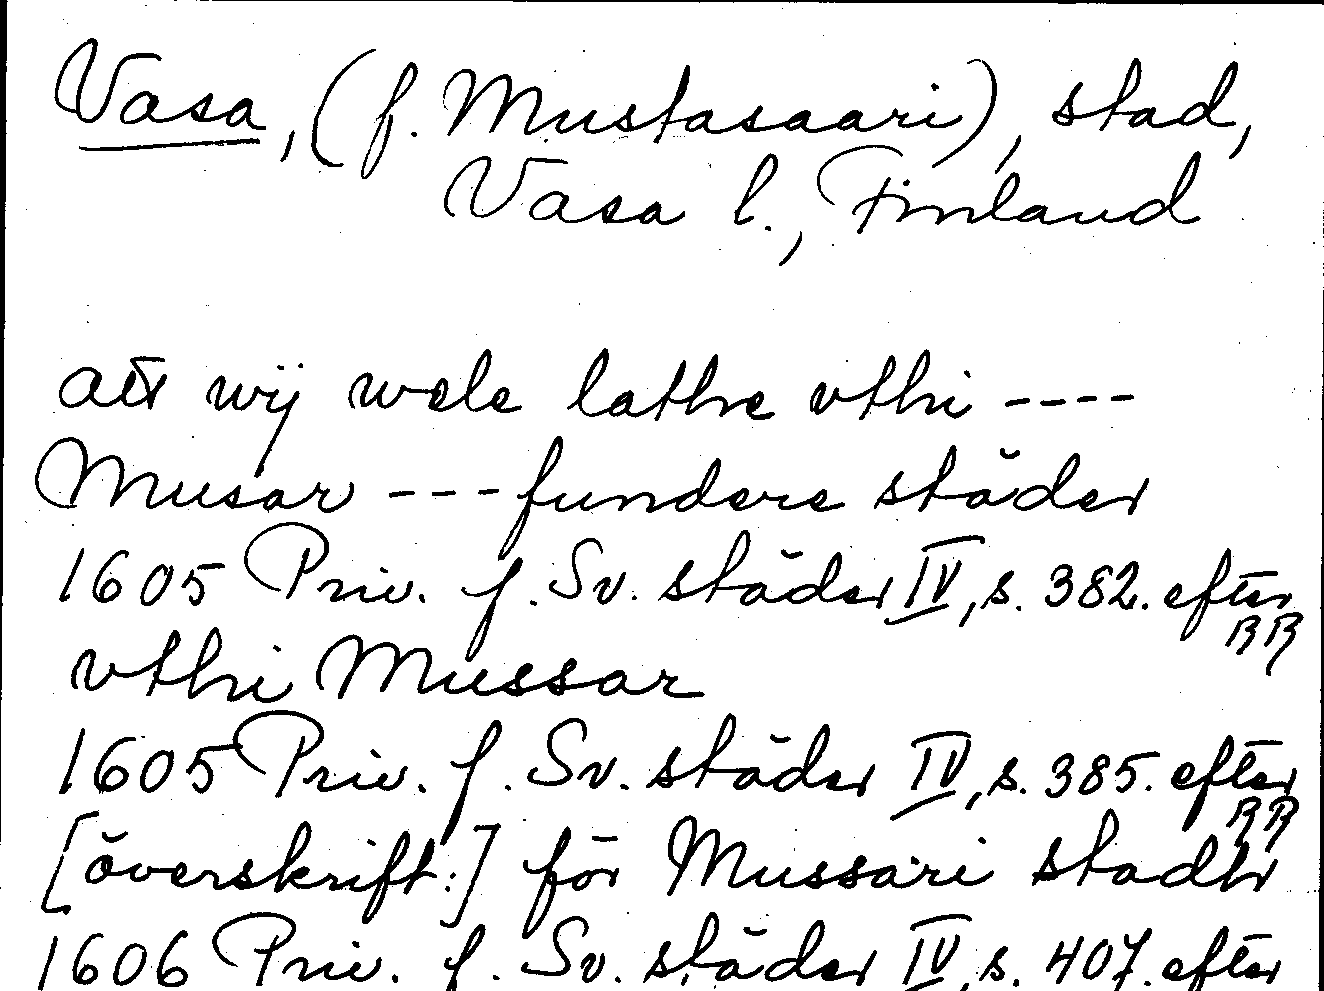 Vasa, (f. Mustasaari), stad,
Vasa l., Finland
att wij wele lathe vthi ----
Musar --- fundere städer
1605 Priv. f. Sv. städer IV, s. 382. efter
RR
vthi Mussar
1605 Priv. f. Sv. städer IV, s. 385. efter
RR
[överskrift:] för Mussari stadh
1606 Priv. f. Sv. städer IV, s. 407. efter